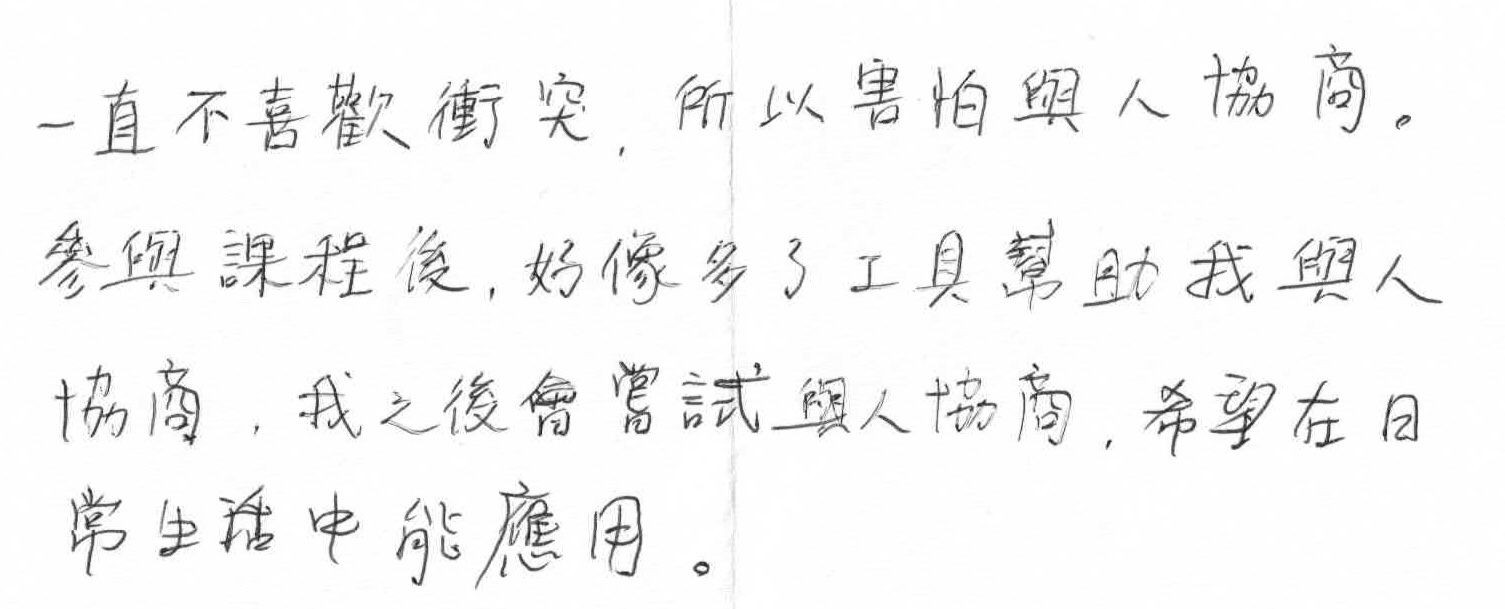 一直不喜歡衝突，所以害怕與人協商。
參與課程後，好像多了工具幫助我與人
協商，我之後會嘗試與人協商，希望在日
常生活中能應用。